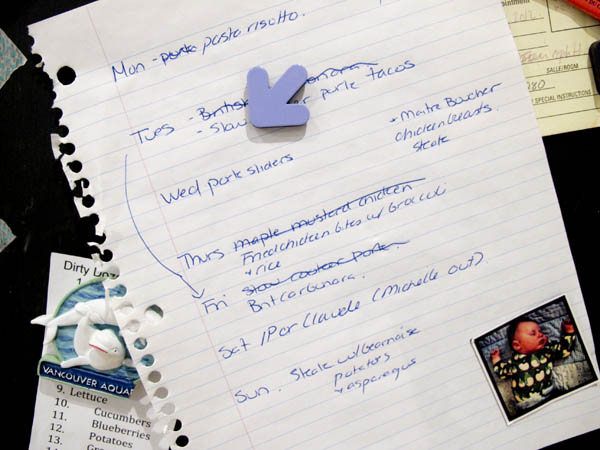 Mon - pork pasta risotto.
Tues - British onara
- Slow r pork tacos
+ Maitre Boucher
chicken breasts
steak
Wed pork sliders
Thurs maple mustard chicken
Fried chicken bites w/ broccoli
+ rice
Fri slow cooker pork
Brit carbonara.
Sat Claude (Michelle out).
Sun. Steak w/ bearnaise
potatoes
+ asparagus
Dirty Doz
VANCOUVER AQUA
9. Lettuce
10. Cucumbers
11. Blueberries
12. Potatoes
13.
ointment
2012
SALLE/ROOM
280
SPECIAL INSTRUCTIONS